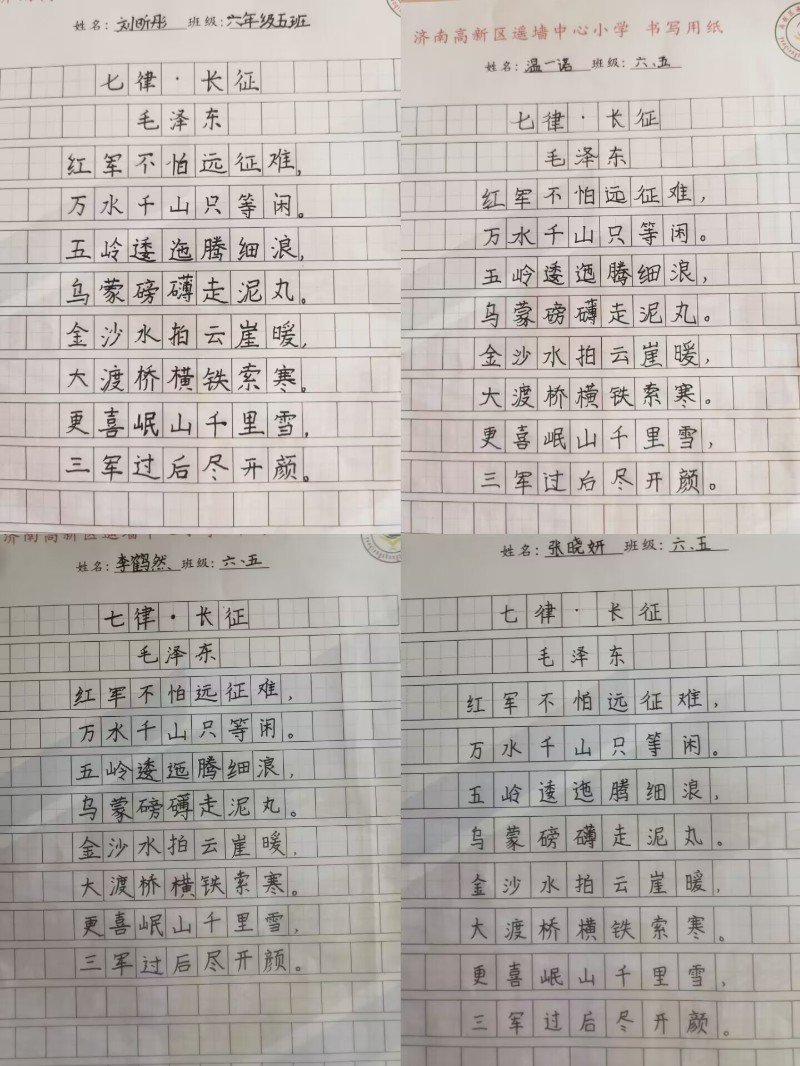 姓名：刘昕彤 班级：六年级五班
七律·长征
毛泽东
红军不怕远征难，
万水千山只等闲。
五岭逶迤腾细浪，
乌蒙磅礴走泥丸。
金沙水拍云崖暖，
大渡桥横铁索寒。
更喜岷山千里雪，
三军过后尽开颜。
济南高新区遥墙中心小学 书写用纸
姓名：温一诺 班级：六、五
七律·长征
毛泽东
红军不怕远征难，
万水千山只等闲。
五岭逶迤腾细浪，
乌蒙磅礴走泥丸。
金沙水拍云崖暖，
大渡桥横铁索寒。
更喜岷山千里雪，
三军过后尽开颜。
济南高新区遥墙中
姓名：李鹤然 班级：六、五
七律·长征
毛泽东
红军不怕远征难，
万水千山只等闲。
五岭逶迤腾细浪，
乌蒙磅礴走泥丸。
金沙水拍云崖暖，
大渡桥横铁索寒。
更喜岷山千里雪，
三军过后尽开颜。
姓名：张晓妍 班级：六、五
七律·长征
毛泽东
红军不怕远征难，
万水千山只等闲。
五岭逶迤腾细浪，
乌蒙磅礴走泥丸。
金沙水拍云崖暖，
大渡桥横铁索寒。
更喜岷山千里雪，
三军过后尽开颜。